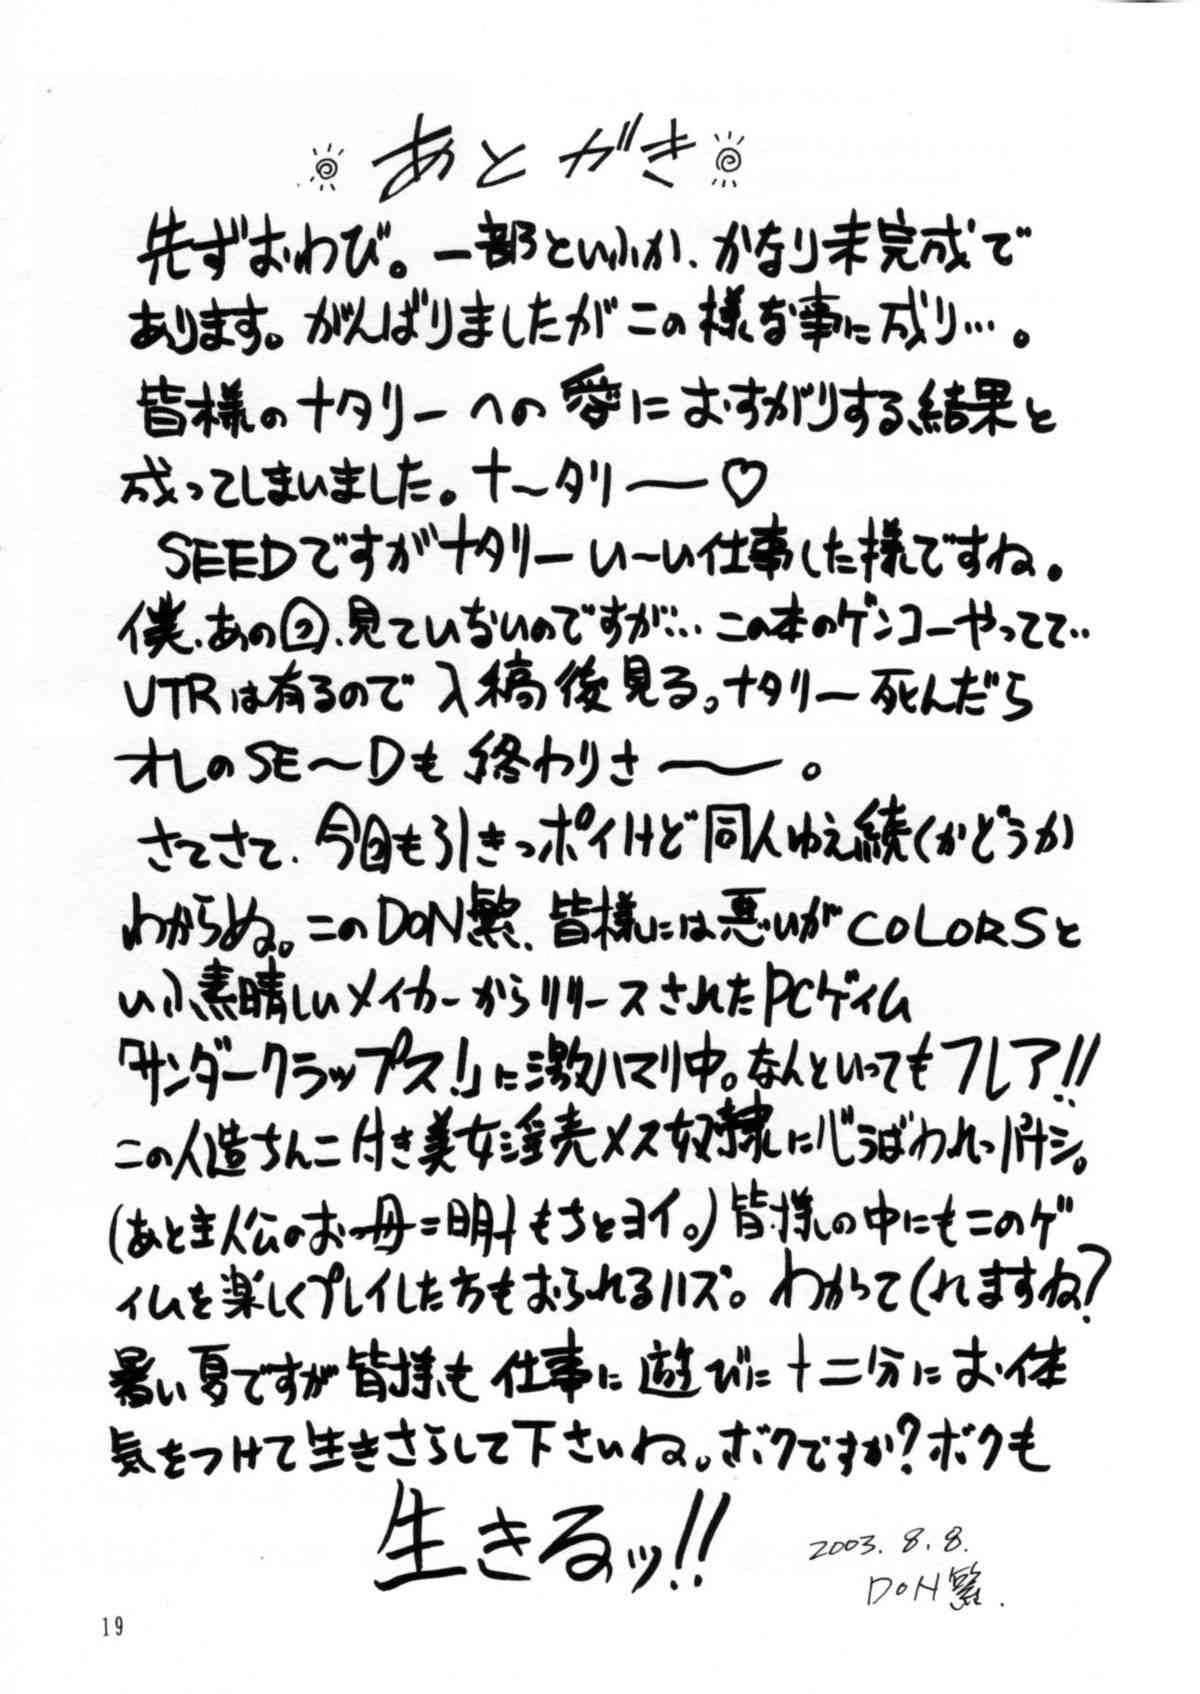 あとがき
先ずおわび。一部といふか、かなり未完成で
あります。がんばりましたがこの様な事に成り…。
皆様のナタリーへの愛におすがりする結果と
成ってしまいました。ナ～タリー♡
SEEDですがナタリーい～い仕事した様ですね。
僕、あの回、見ていないのですが… この本のゲンコーやってて‥
VTRは有るので入稿後見る。ナタリー死んだら
オレのSE～Dも終わりさ――。
さてさて、今回も引きっポイけど同人ゆえ続くかどうか
わからぬ。このDoN繁、皆様には悪いがCOLORSと
いふ素晴しいメイカーからリリースされたPCゲイム
「サンダークラップス!」に激ハマリ中。なんといってもフレア!!
この人造ちんこ付き美女淫売メス奴隷に心うばわれっパナシ。
(あと主人公のお母=明けもちとヨイ。)皆様の中にもこのゲ
イムを楽しくプレイした方もおられるハズ。わかってくれますね?
暑い夏ですが皆様も仕事に遊びに十二分にお体
気をつけて生きさらして下さいね。ボクですか?ボクも
生きるッ!!
2003.8.8.
DoN繁.
19